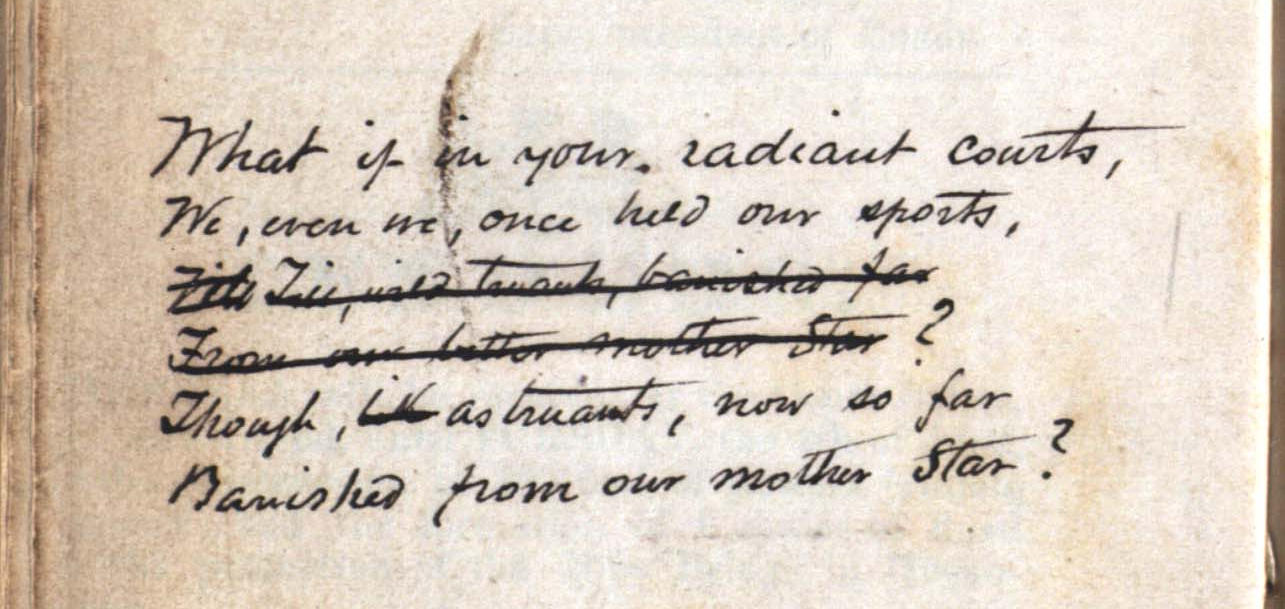 What if in your radiant courts,
We, even we, once held our sports,
Till Till, wild truants, banished far
From our better mother Star?
Though, as truants, now so far
Banished from our mother Star?